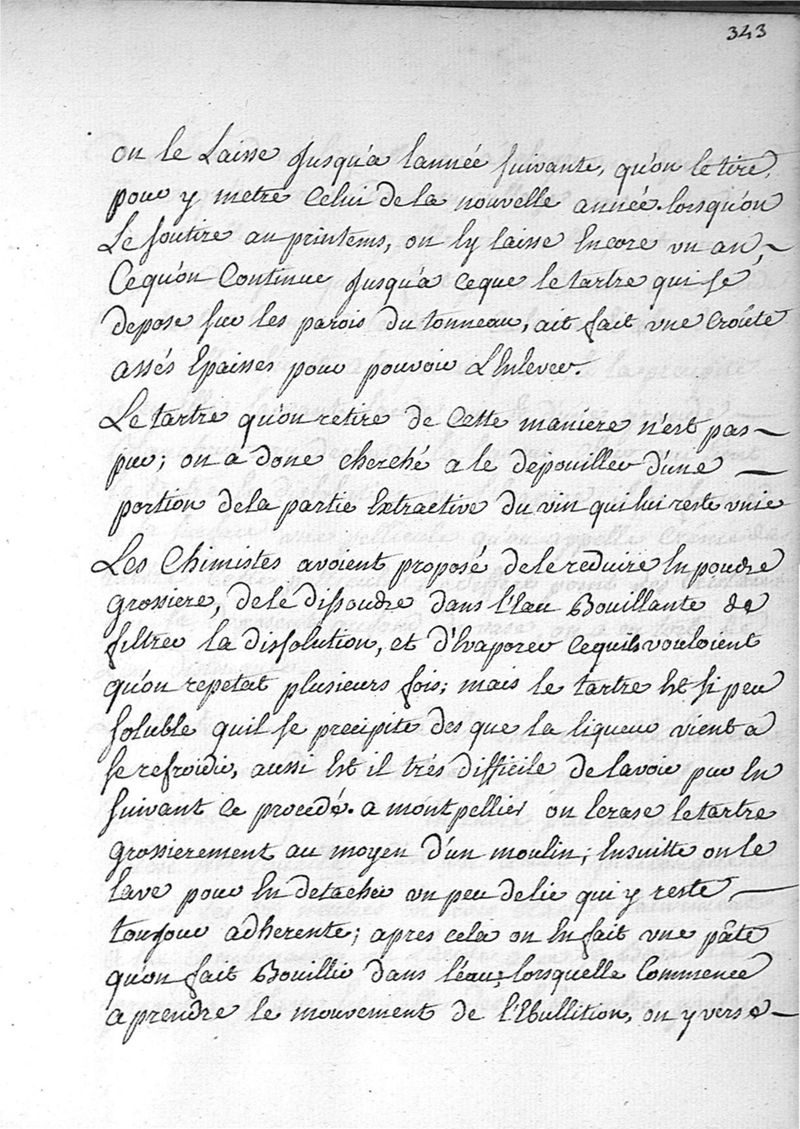 343
on le Laisse Jusqu'a lannée suivante, qu'on le tire,
pour y metre Celui de la nouvelle année. lorsqu'on
Le soutire au printems, on ly laisse Encore vn an,
Cequ'on Continue Jusqu'a ceque le tartre qui se
depose sur les parois du tonneau, ait fait vne Croûte
assés Epaisses pour pouvoir L'Enlever.
Le tartre qu'on retire de Cette maniere n'est pas
pur; on a donc cherché a le depouiller d'une
portion dela partie Extractive du vin qui lui reste vnie
Les Chimistes avoient proposé dele reduire En poudre
grossiere, dele dissoudre dans l'Eau Bouillante de
filtrer la dissolution, et d'Evaporer cequils vouloient
qu'on repetat plusieurs fois; mais le tartre Est si peu
soluble quil se precipite des que la liqueur vient a
se refroidir, aussi Est il trés difficile de lavoir pur En
suivant ce procedé. a montpellier on Ecrase le tartre
grossierement au moyen d'un moulin; Ensuitte on le
lave pour En detacher un peu delie qui y reste
toujour adherente; apres cela on En fait vne pâte
qu'on fait Bouillir dans l'éau; lorsquelle Commence
a prendre le mouvement de l'Ebullition, on y verse